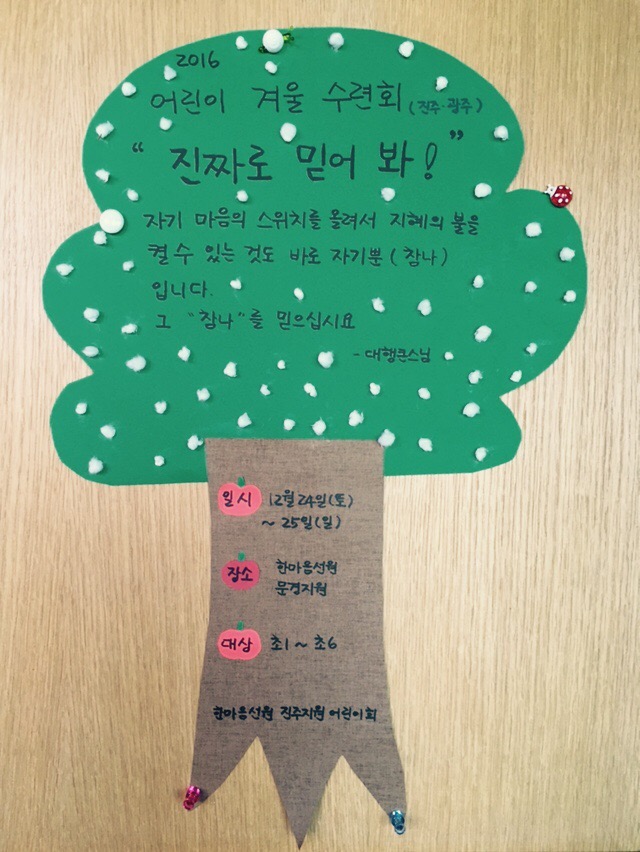 2016
어린이 겨울 수련회 (진주·광주)
“ 진짜로 믿어 봐! ”
자기 마음의 스위치를 올려서 지혜의 불을
켤 수 있는 것도 바로 자기뿐 ( 참나 )
입니다.
그 “참나”를 믿으십시요
- 대행큰스님
일시 12월 24일(토)
~ 25일(일)
장소 한마음선원
문경지원
대상 초1 ~ 초6
한마음선원 진주지원 어린이회